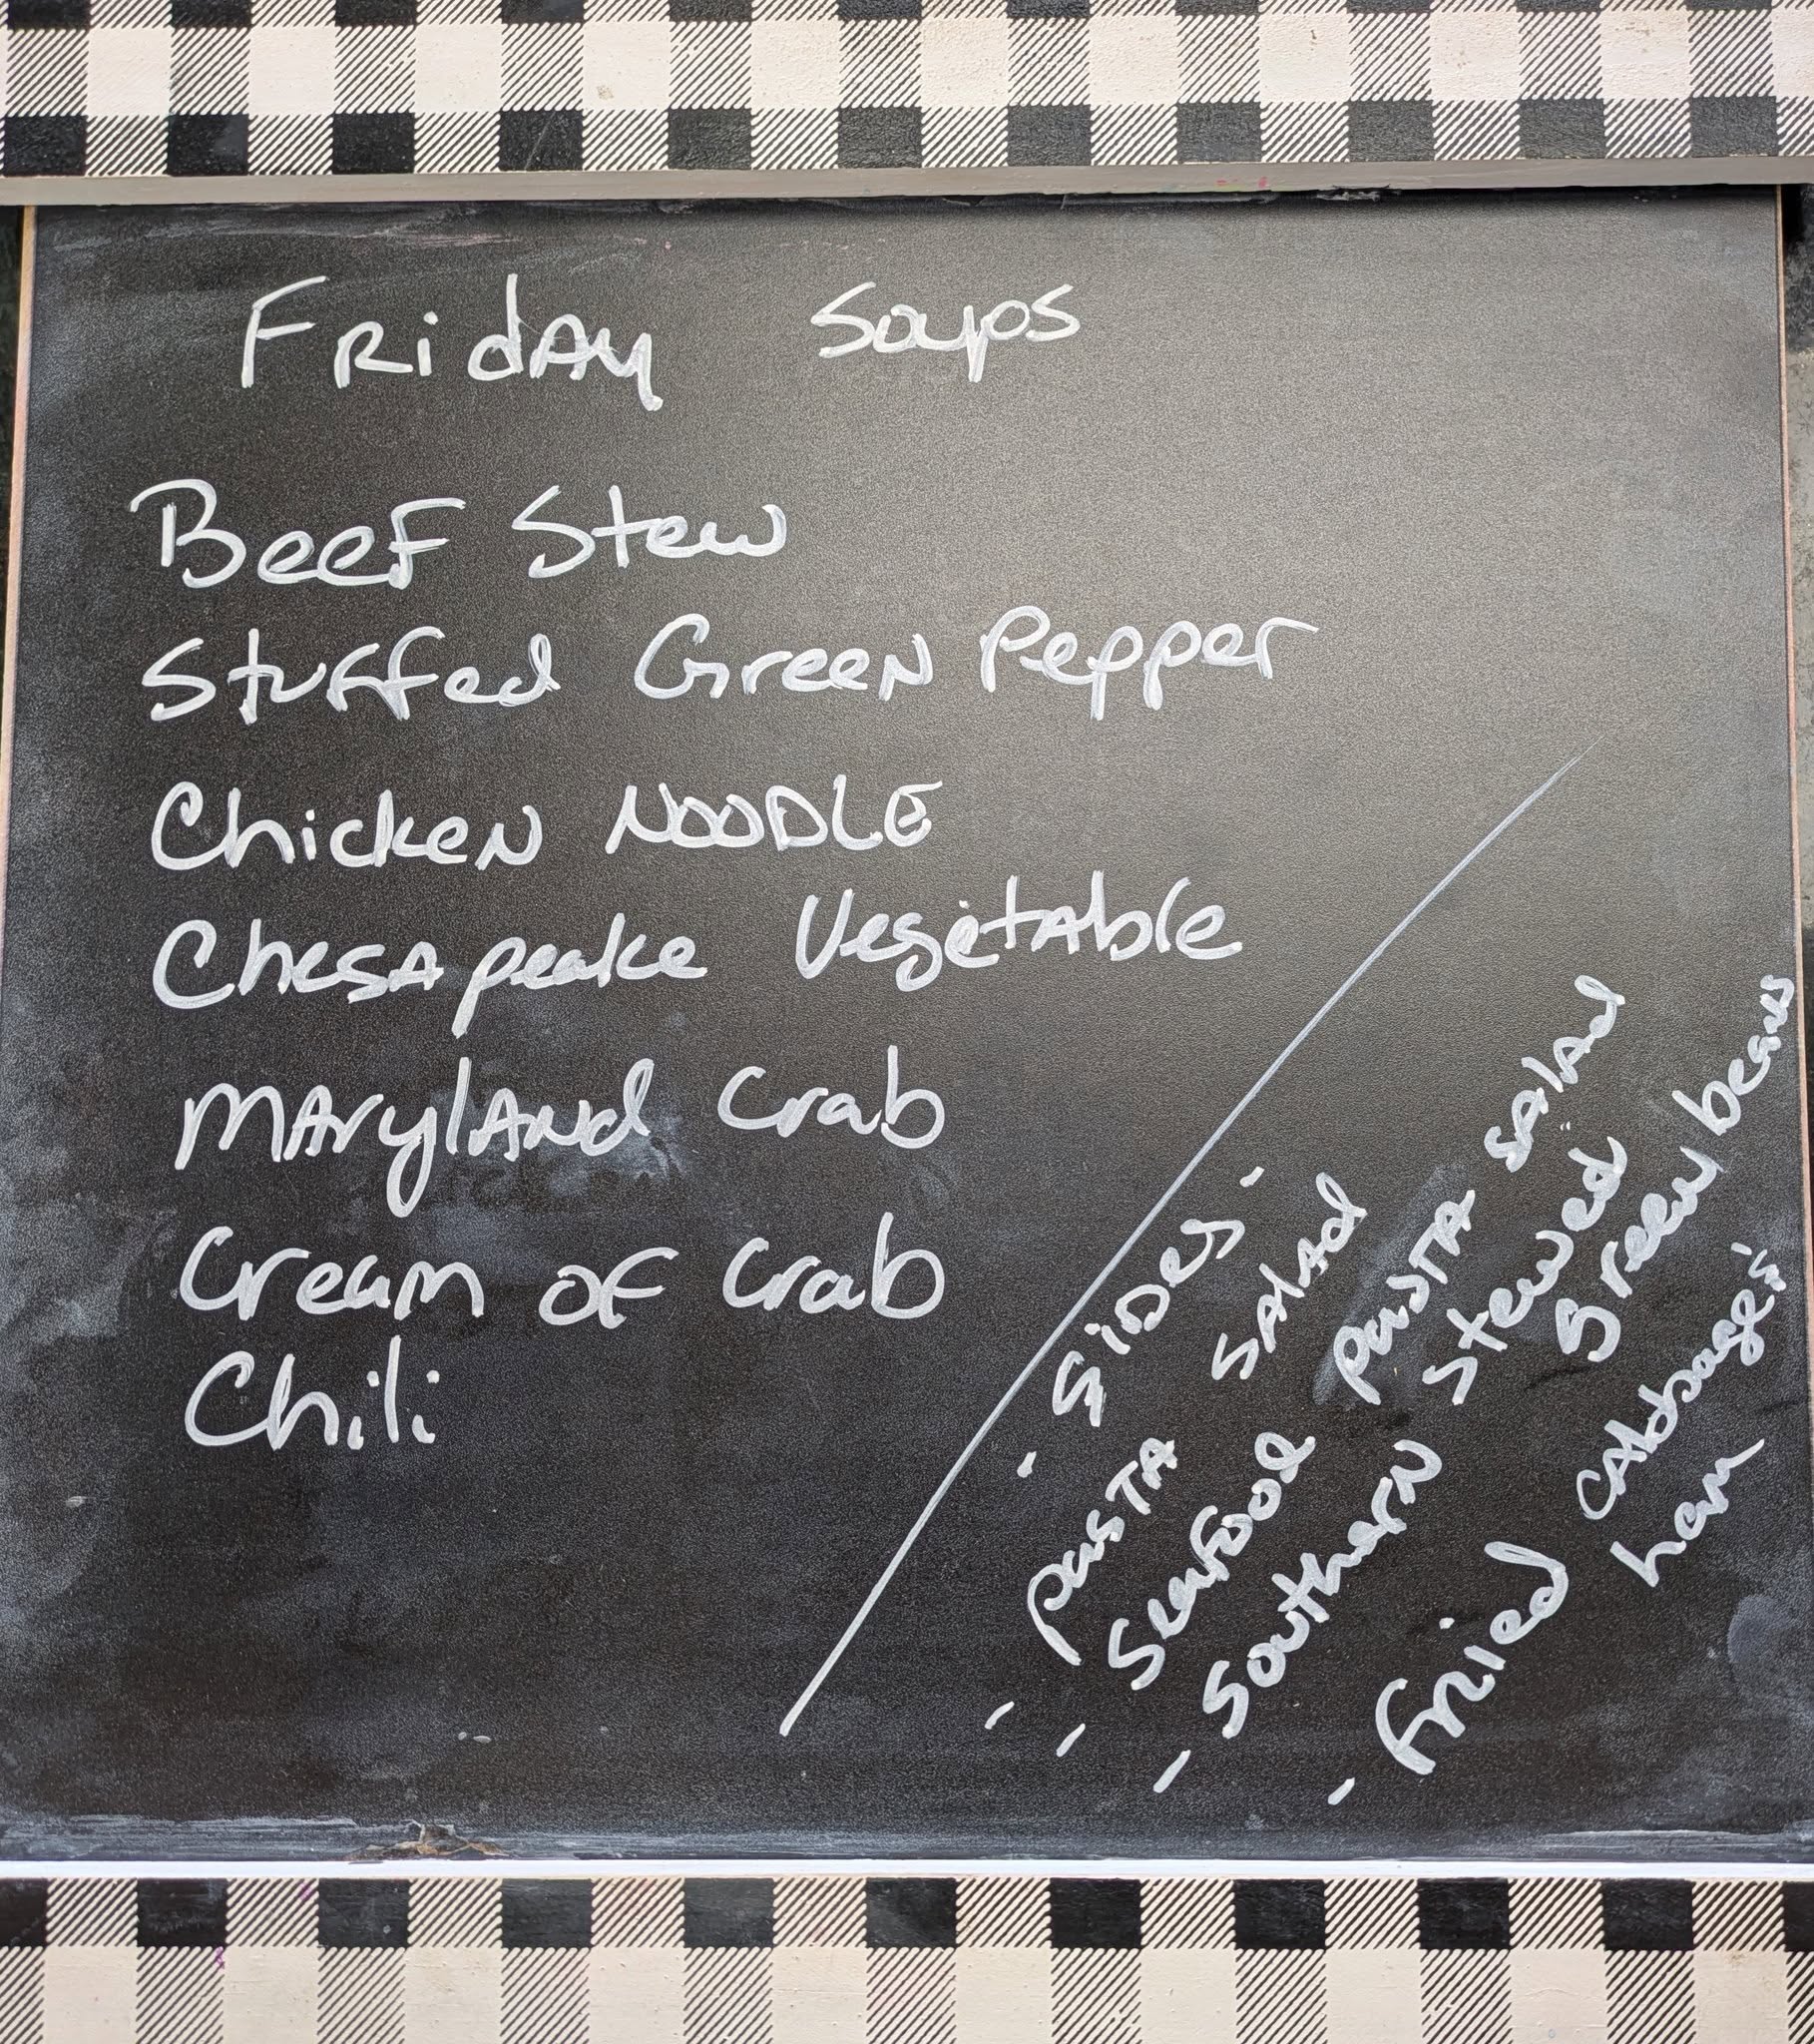 FRidAy Soups
BeeF Stew
Stuffed GreeN Pepper
ChickeN NOODLE
ChesApeake VegetAble
MAryLANd Crab
Cream of Crab
Chili
- Sides -
- pasTA SALAd
- Seafood pasTA SALAd
- SoutherN Stewed
green beans
- FRied CAbbage &
ham